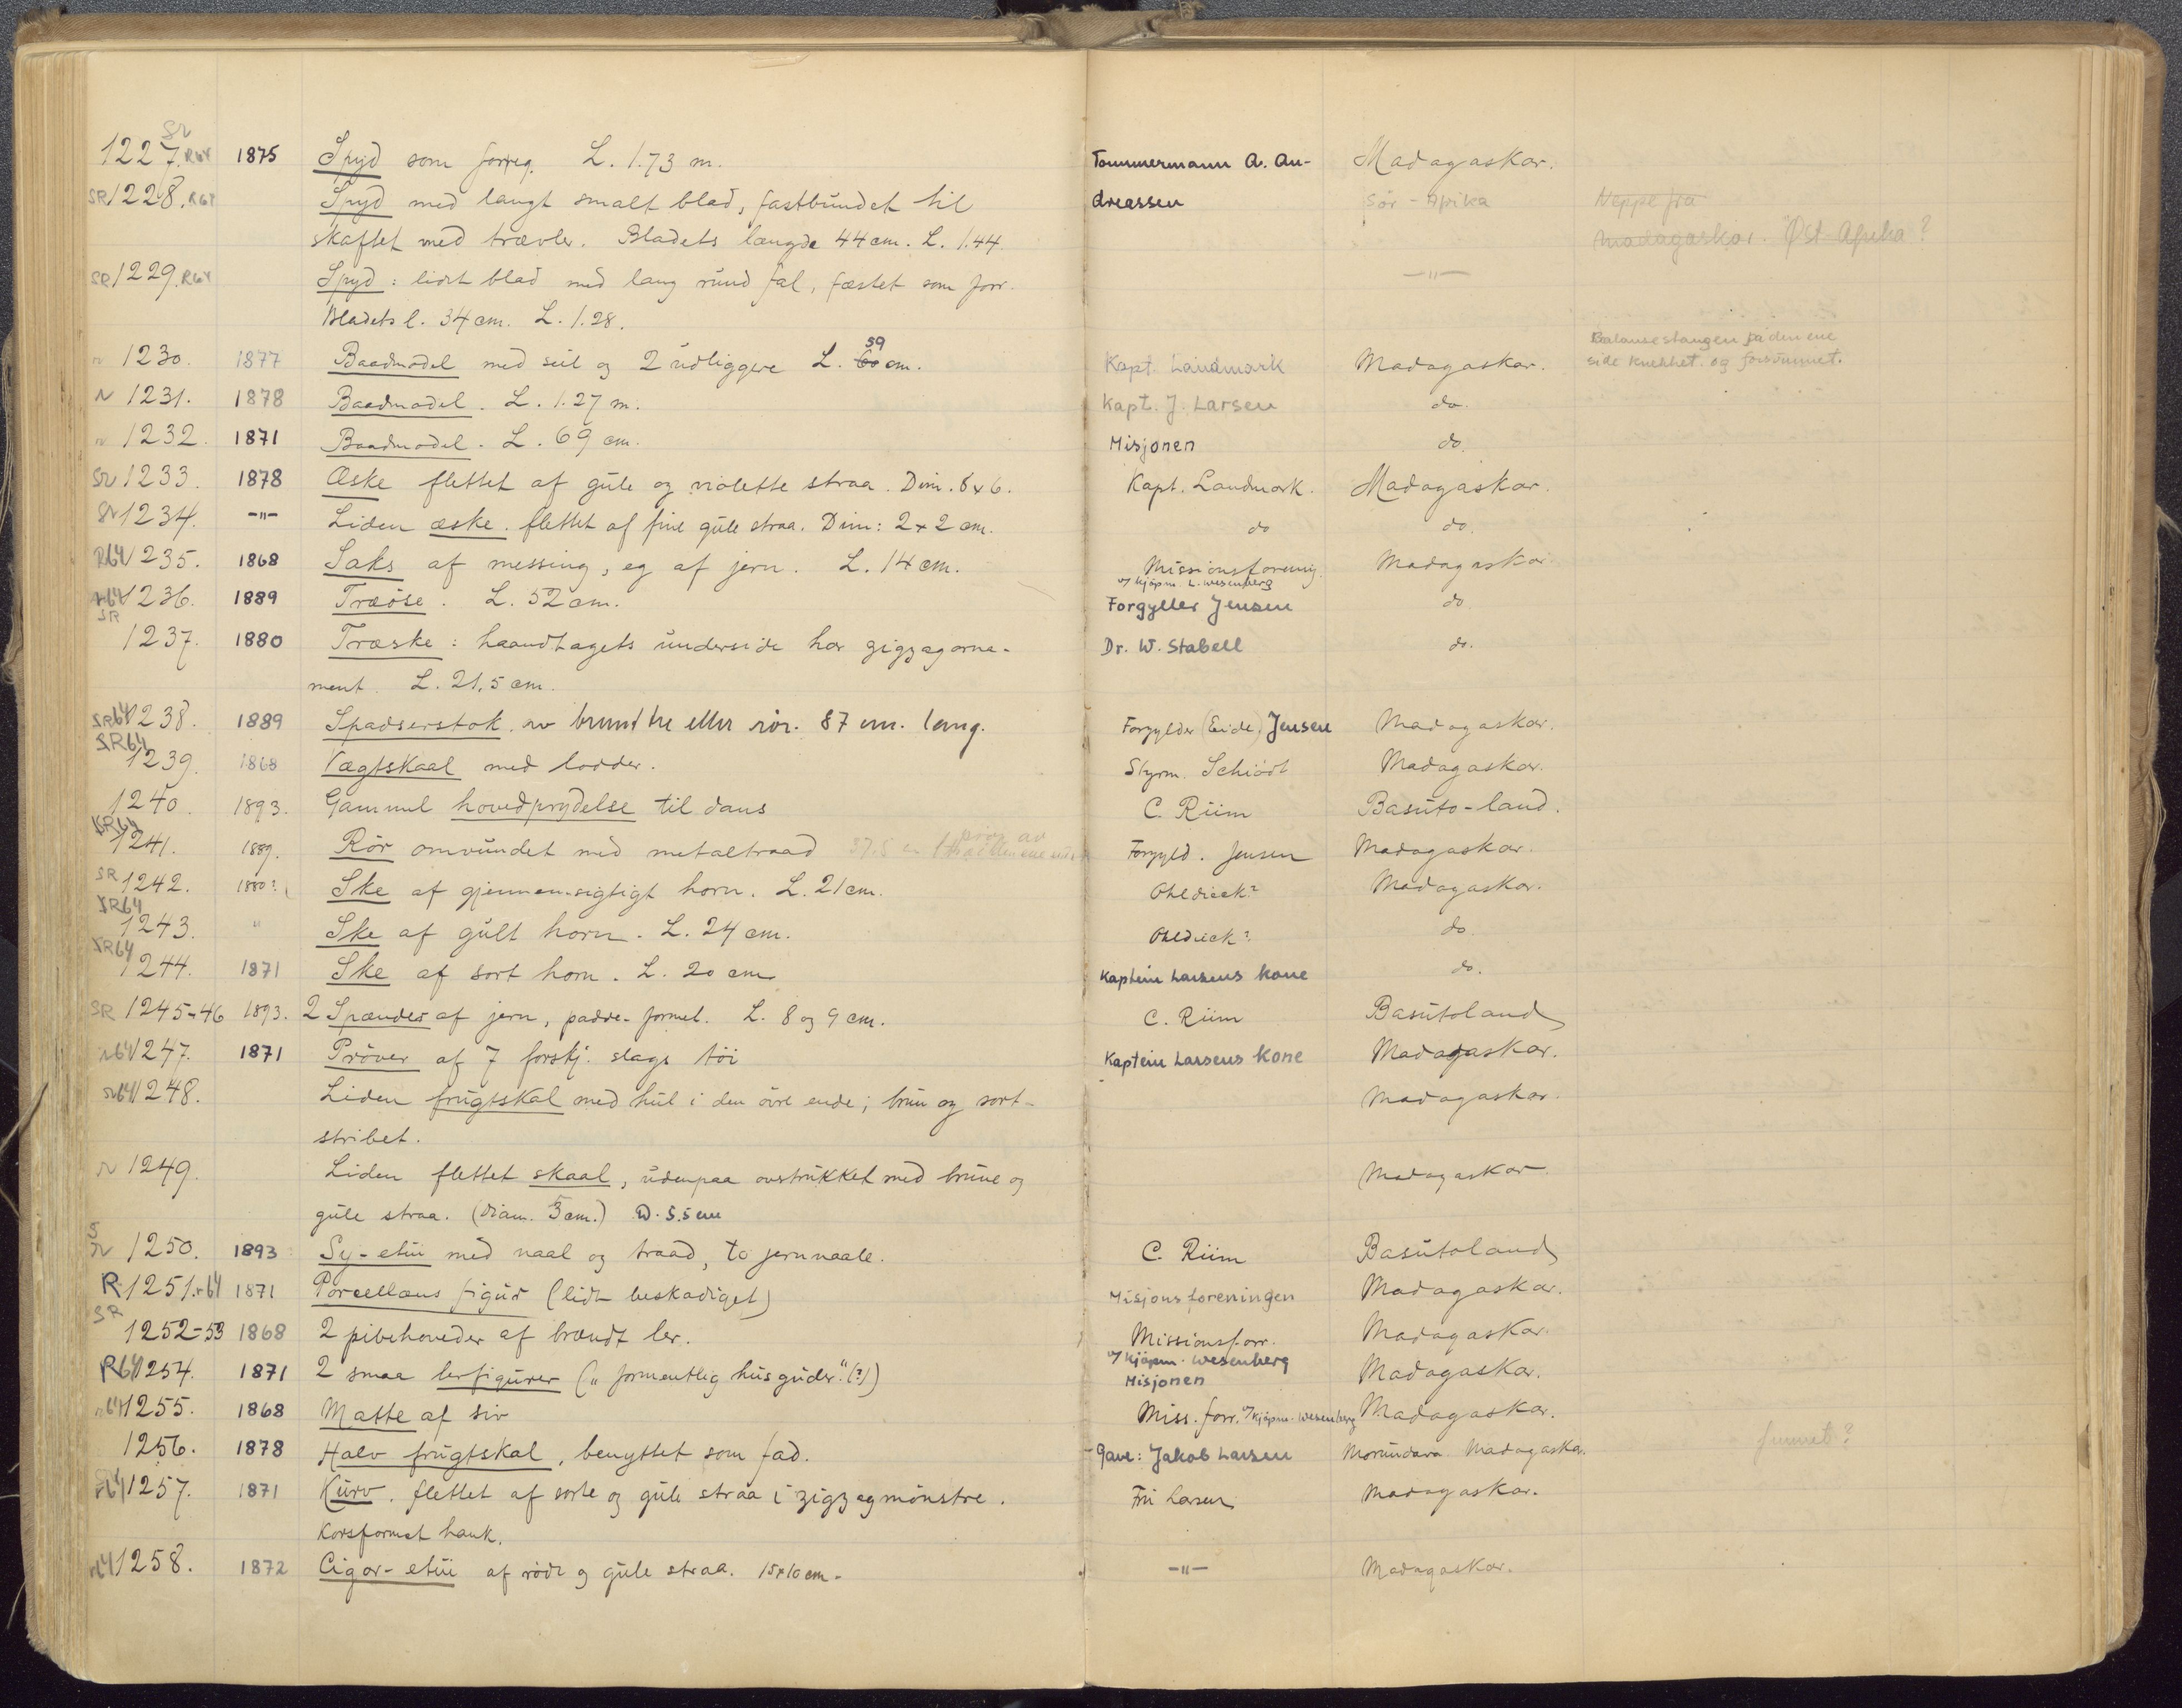 SR
1227. R64 1875 Spyd som forreg. L. 1.73 m. Tømmermann A. An- Madagaskar.
SR 1228. R64 Spyd med langt smalt blad, fastbundet til dreassen Sør-Afrika Neppe fra
skaftet med trævler. Bladets længde 44 cm. L. 1.44 Madagaskar. Øst-Afrika?
SR 1229. R64 Spyd: lidt blad med lang rund fal, fæstet som forr. —"—
Bladets l. 34 cm. L. 1.28.
59 Balansestangen på den ene
1230. 1877 Baadmodel med seil og 2 udliggere L. 60 cm. Kapt. Landmark Madagaskar. side knekket og forsvunnet.
1231. 1878 Baadmodel. L. 1.27 m. Kapt. J. Larsen do.
1232. 1871 Baadmodel. L. 69 cm. Misjonen do.
SR 1233. 1878 Æske flettet af gule og violette straa. Dim. 8x6. Kapt. Landmark. Madagaskar.
SR 1234. —"— Liden æske. flettet af fine gule straa. Dim: 2x2 cm. do do.
R64 1235. 1868 Saks af messing, eg af jern. L. 14 cm. Missionsforenig. Madagaskar
v/ Kjøpm. L. Wesenberg
R64 1236. 1889 Træøse. L. 52 cm. Forgyller Jensen do
SR
1237. 1880 Træske: haandtagets underside har zigzagorna- Dr. W. Stabell do.
ment. L. 21,5 cm.
SR64 1238. 1889 Spadserstok. av brunt tre eller rör. 87 cm. lang. Forgylder (Eide) Jensen Madagaskar.
SR64
1239. 1868 Vægtskaal med lodder. Styrm. Schiödt Madagaskar.
1240. 1893. Gammel hovedprydelse til dans C. Riim Basuto-land.
SR64
1241. 1889. Rör omvundet med metaltraad 37.5 cm Forgyld. Jensen Madagaskar.
SR 1242. 1880? Ske af gjennemsigtigt horn. L. 21 cm. Ohldieck? Madagaskar.
SR64
1243. " Ske af gult horn. L. 24 cm. Ohldieck? do
SR64
1244. 1871 Ske af sort horn. L. 20 cm Kaptein Larsens kone do.
SR 1245-46 1893. 2 Spænder af jern, padde-formet. L. 8 og 9 cm. C. Riim Basutoland
R64 1247. 1871 Pröver af 7 forskj. slags töi Kaptein Larsens kone Madagaskar.
R64 1248. Liden frugtskal med hul i den övre ende; brun og sort- Madagaskar.
stribet.
1249. Liden flettet skaal, udenpaa overtrukket med brune og Madagaskar
gule straa. (diam. 5 cm.) D. 5.5 cm
S
1250. 1893 Sy-etui med naal og traad, to jernnaale. C. Riim Basutoland
R 1251. R64 1871 Porcellæns figur (lidt beskadiget) Misjonsforeningen Madagaskar.
SR
1252-53 1868 2 pibehoveder af brændt ler. Missionsforr. Madagaskar.
v/ Kjøpm. Wesenberg
R64 1254. 1871 2 smaa lerfigurer („formentlig husguder." (?)) Misjonen Madagaskar.
R64 1255. 1868 Matte af siv Miss. forr. v/ Kjøpm. Wesenberg Madagaskar.
1256. 1878 Halv frugtskal, benyttet som fad. Gave: Jakob Larsen Morundava Madagaskar. funnet?
R64 1257. 1871 Kurv. flettet af sorte og gule straa i zigzagmönstre. Fru Larsen Madagaskar.
Korsformet hank.
R64 1258. 1872 Cigar-etui af röde og gule straa. 15x10 cm. —"— Madagaskar.